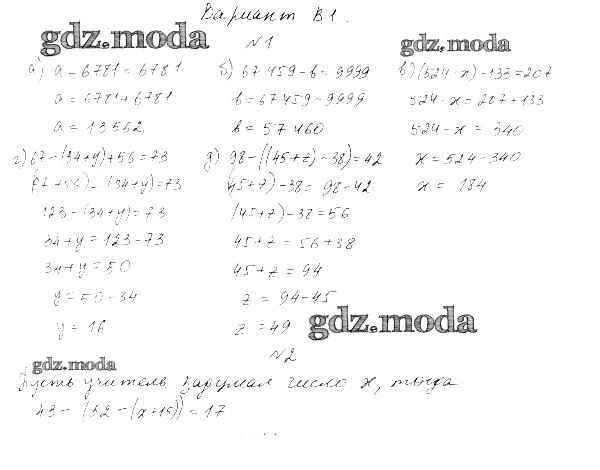 Вариант В1.
gdz.moda
№1
gdz.moda
а) a - 6781 = 6781
a = 6781 + 6781
a = 13562
б) 67459 - b = 9999
b = 67459 - 9999
b = 57460
в) (524 - x) - 133 = 207
524 - x = 207 + 133
524 - x = 340
x = 524 - 340
x = 184
г) 67 - (34 + y) + 56 = 73
(67 + 56) - (34 + y) = 73
123 - (34 + y) = 73
34 + y = 123 - 73
34 + y = 50
y = 50 - 34
y = 16
д) 98 - ((45 + z) - 38) = 42
(45 + z) - 38 = 98 - 42
(45 + z) - 38 = 56
45 + z = 56 + 38
45 + z = 94
z = 94 - 45
z = 49
gdz.moda
№2
gdz.moda
Пусть учитель задумал число x, тогда
43 - (52 - (x + 15)) = 17